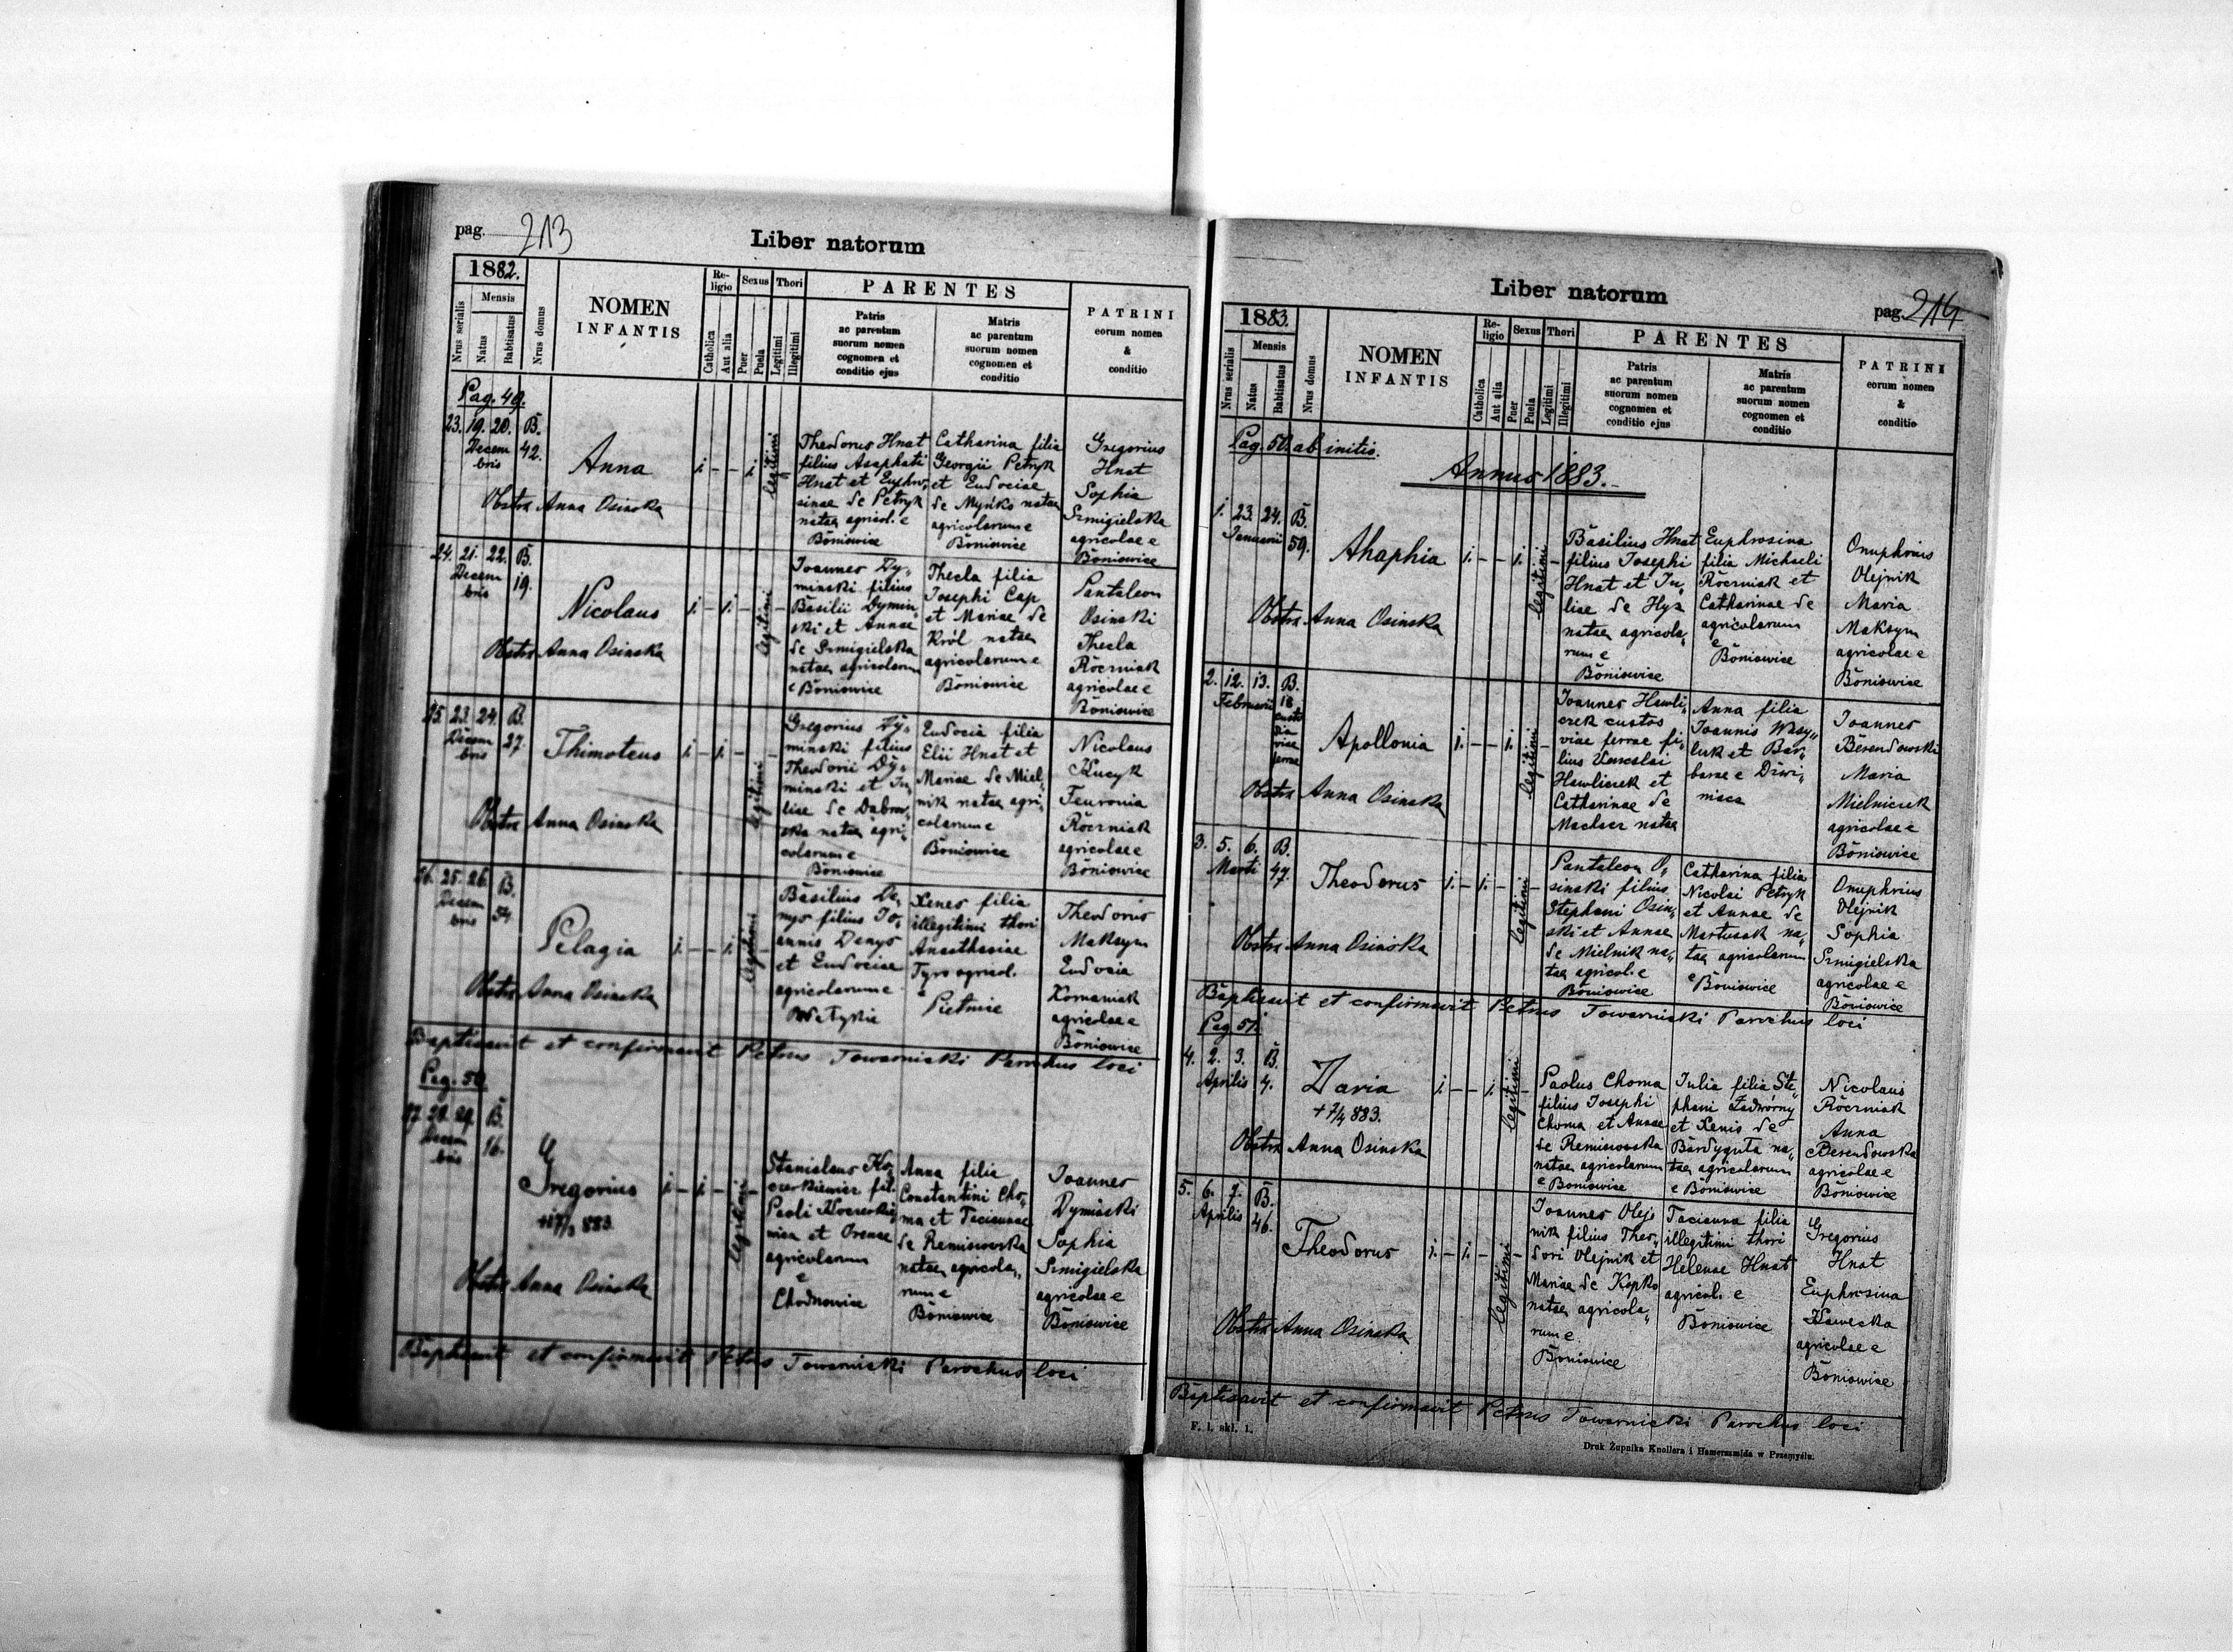 pag. 213
Liber natorum
1882.
Mensis
Nrus serialis
Natus
Babtisatus
Nrus domus
NOMEN
INFANTIS
Re-
ligio
Catholica
Aut alia
Sexus
Puer
Puela
Thori
Legitimi
Illegitimi
PARENTES
Patris
ac parentum
suorum nomen
cognomen et
conditio ejus
Matris
ac parentum
suorum nomen
cognomen et
conditio
PATRINI
eorum nomen
&
conditio
Pag. 49.
23. 19. 20. B.
Decem
bris
42.
Anna
1 - - 1 legitimi
Obstrx Anna Osinska
Theodorus Hnat
filius Asaphati
Hnat et Euphro„
sinae de Petryk
natae agricol. e
Boniowice
Catharina filia
Georgii Petryk
et Eudociae
de Myńko natae
agricolarum e
Boniowice
Gregorius
Hnat
Sophia
Szmigielska
agricolae e
Boniowice
24. 21. 22. B.
Decem
bris
19.
Nicolaus
1. - 1. - legitimi -
Obstrx Anna Osinska
Joannes Dy„
minski filius
Basilii Dymin„
ski et Annae
de Szmigielska
natae agricolarum
e Boniowice
Thecla filia
Josephi Cap
et Mariae de
Król natae
agricolarum e
Boniowice
Pantaleon
Osinski
Thecla
Roczniak
agricolae e
Boniowice
25. 23. 24. B.
Decem
bris
27.
Thimoteus
1 - 1 - legitimi -
Obstrx Anna Osinska
Gregorius Dy„
minski filius
Theodorii Dy„
minski et Ju„
liae de Dabrow„
ska natae agri„
colarum e
Boniowice
Eudocia filia
Elii Hnat et
Mariae de Miel„
nik natae agri„
colarum e
Boniowice
Nicolaus
Kucyk
Feuronia
Roczniak
agricolae e
Boniowice
26. 25. 26. B.
Decem
bris
54.
Pelagia
1. - - 1. legitimi -
Obstrx Anna Osinska
Basilius De„
nys filius Jo„
annis Denys
et Eudociae
agricolarum e
Xenes filia
illegitimi thori
Anasthasiae
Tyro agricol.
e Pietnice
Theodorus
Maksym
Eudocia
Romaniak
agricolae e
Boniowice
Baptisavit et confirmavit Petrus Towarnicki Parochus loci
Pag. 50.
27. 28. 29. B.
Decem
bris
16.
Gregorius
883.
1 - 1 - legitimi -
Obstrx Anna Osinska
Stanislaus Ko„
czerkiewicz fil.
Paoli
et Orenae
agricolarum
e
Chodnowice
Anna filia
Constantini Cho„
ma et Tacianae
de Remisowska
natae agricola„
rum e
Boniowice
Joannes
Dyminski
Sophia
Szmigielska
agricolae e
Boniowice
Baptisavit et confirmavit Petrus Towarnicki Parochus loci
Liber natorum
pag. 214
1883.
Mensis
Nrus serialis
Natus
Babtisatus
Nrus domus
NOMEN
INFANTIS
Re-
ligio
Catholica
Aut alia
Sexus
Puer
Puela
Thori
Legitimi
Illegitimi
PARENTES
Patris
ac parentum
suorum nomen
cognomen et
conditio ejus
Matris
ac parentum
suorum nomen
cognomen et
conditio
PATRINI
eorum nomen
&
conditio
Pag. 50. ab initis.
Annus 1883.
1. 23. 24. B.
Januarii
59.
Ahaphia
1. - - 1. legitimi -
Obstrx Anna Osinska
Basilius Hnat
filius Josephi
Hnat et Ju„
liae de Hyz
natae agricola„
rum e
Boniowice
Euphrosina
filia Michaeli
Roczniak et
Catharinae de
agricolarum
e
Boniowice
Onuphrius
Olejnik
Maria
Maksym
agricolae e
Boniowice
2. 12. 13. B.
Februarii
18
custo
dia
viae
ferrae
Apollonia
1. - - 1. legitimi -
Obstrx Anna Osinska
Joannes Hawli„
czek custos
viae ferrae fi„
lius Venceslai
Hawliczek et
Catharinae de
Machacz natae
Anna filia
Joannis Wasy„
luk et Bar„
barae e Dzwi„
niacz
Joannes
Berendowski
Maria
Mielniczek
agricolae e
Boniowice
3. 5. 6. B.
Marti
47.
Theodorus
1. - 1. - legitimi -
Obstrx Anna Osinska
Pantaleon O„
sinski filius
Stephani Osin„
ski et Annae
de Mielnik na„
tae agricol. e
Boniowice
Catharina filia
Nicolai Petryk
et Annae de
Martusak na„
tae agricolarum
e Boniowice
Onuphrius
Olejnik
Sophia
Szmigielska
agricolae e
Boniowice
Baptisavit et confirmavit Petrus Towarnicki Parochus loci
Pag. 51.
4. 2. 3. B.
Aprilis
4.
Daria
+ 7/4 883.
1. - - 1. legitimi -
Obstrx Anna Osinska
Paolus Choma
filius Josephi
Choma et Annae
de Remisowska
natae agricolarum
e Boniowice
Julia filia Ste„
phani Zadwórny
et Xenis de
Bardyguta na„
tae agricolarum
e Boniowice
Nicolaus
Roczniak
Anna
Berendowska
agricolae e
Boniowice
5. 6. 7. B.
Aprilis
46.
Theodorus
1. - 1. - legitimi -
Obstrx Anna Osinska
Joannes Olej„
nik filius Theo„
dori Olejnik et
Mariae de Kopko
natae agricola„
rum e
Boniowice
Tacianna filia
illegitimi thori
Helenae Hnat
agricol. e
Boniowice
Gregorius
Hnat
Euphrosina
Kawecka
agricolae e
Boniowice
Baptisavit et confirmavit Petrus Towarnicki Parochus loci
F. l. skl. 1.
Druk Żupnika Knollera i Hamerszmida w Przemyślu.